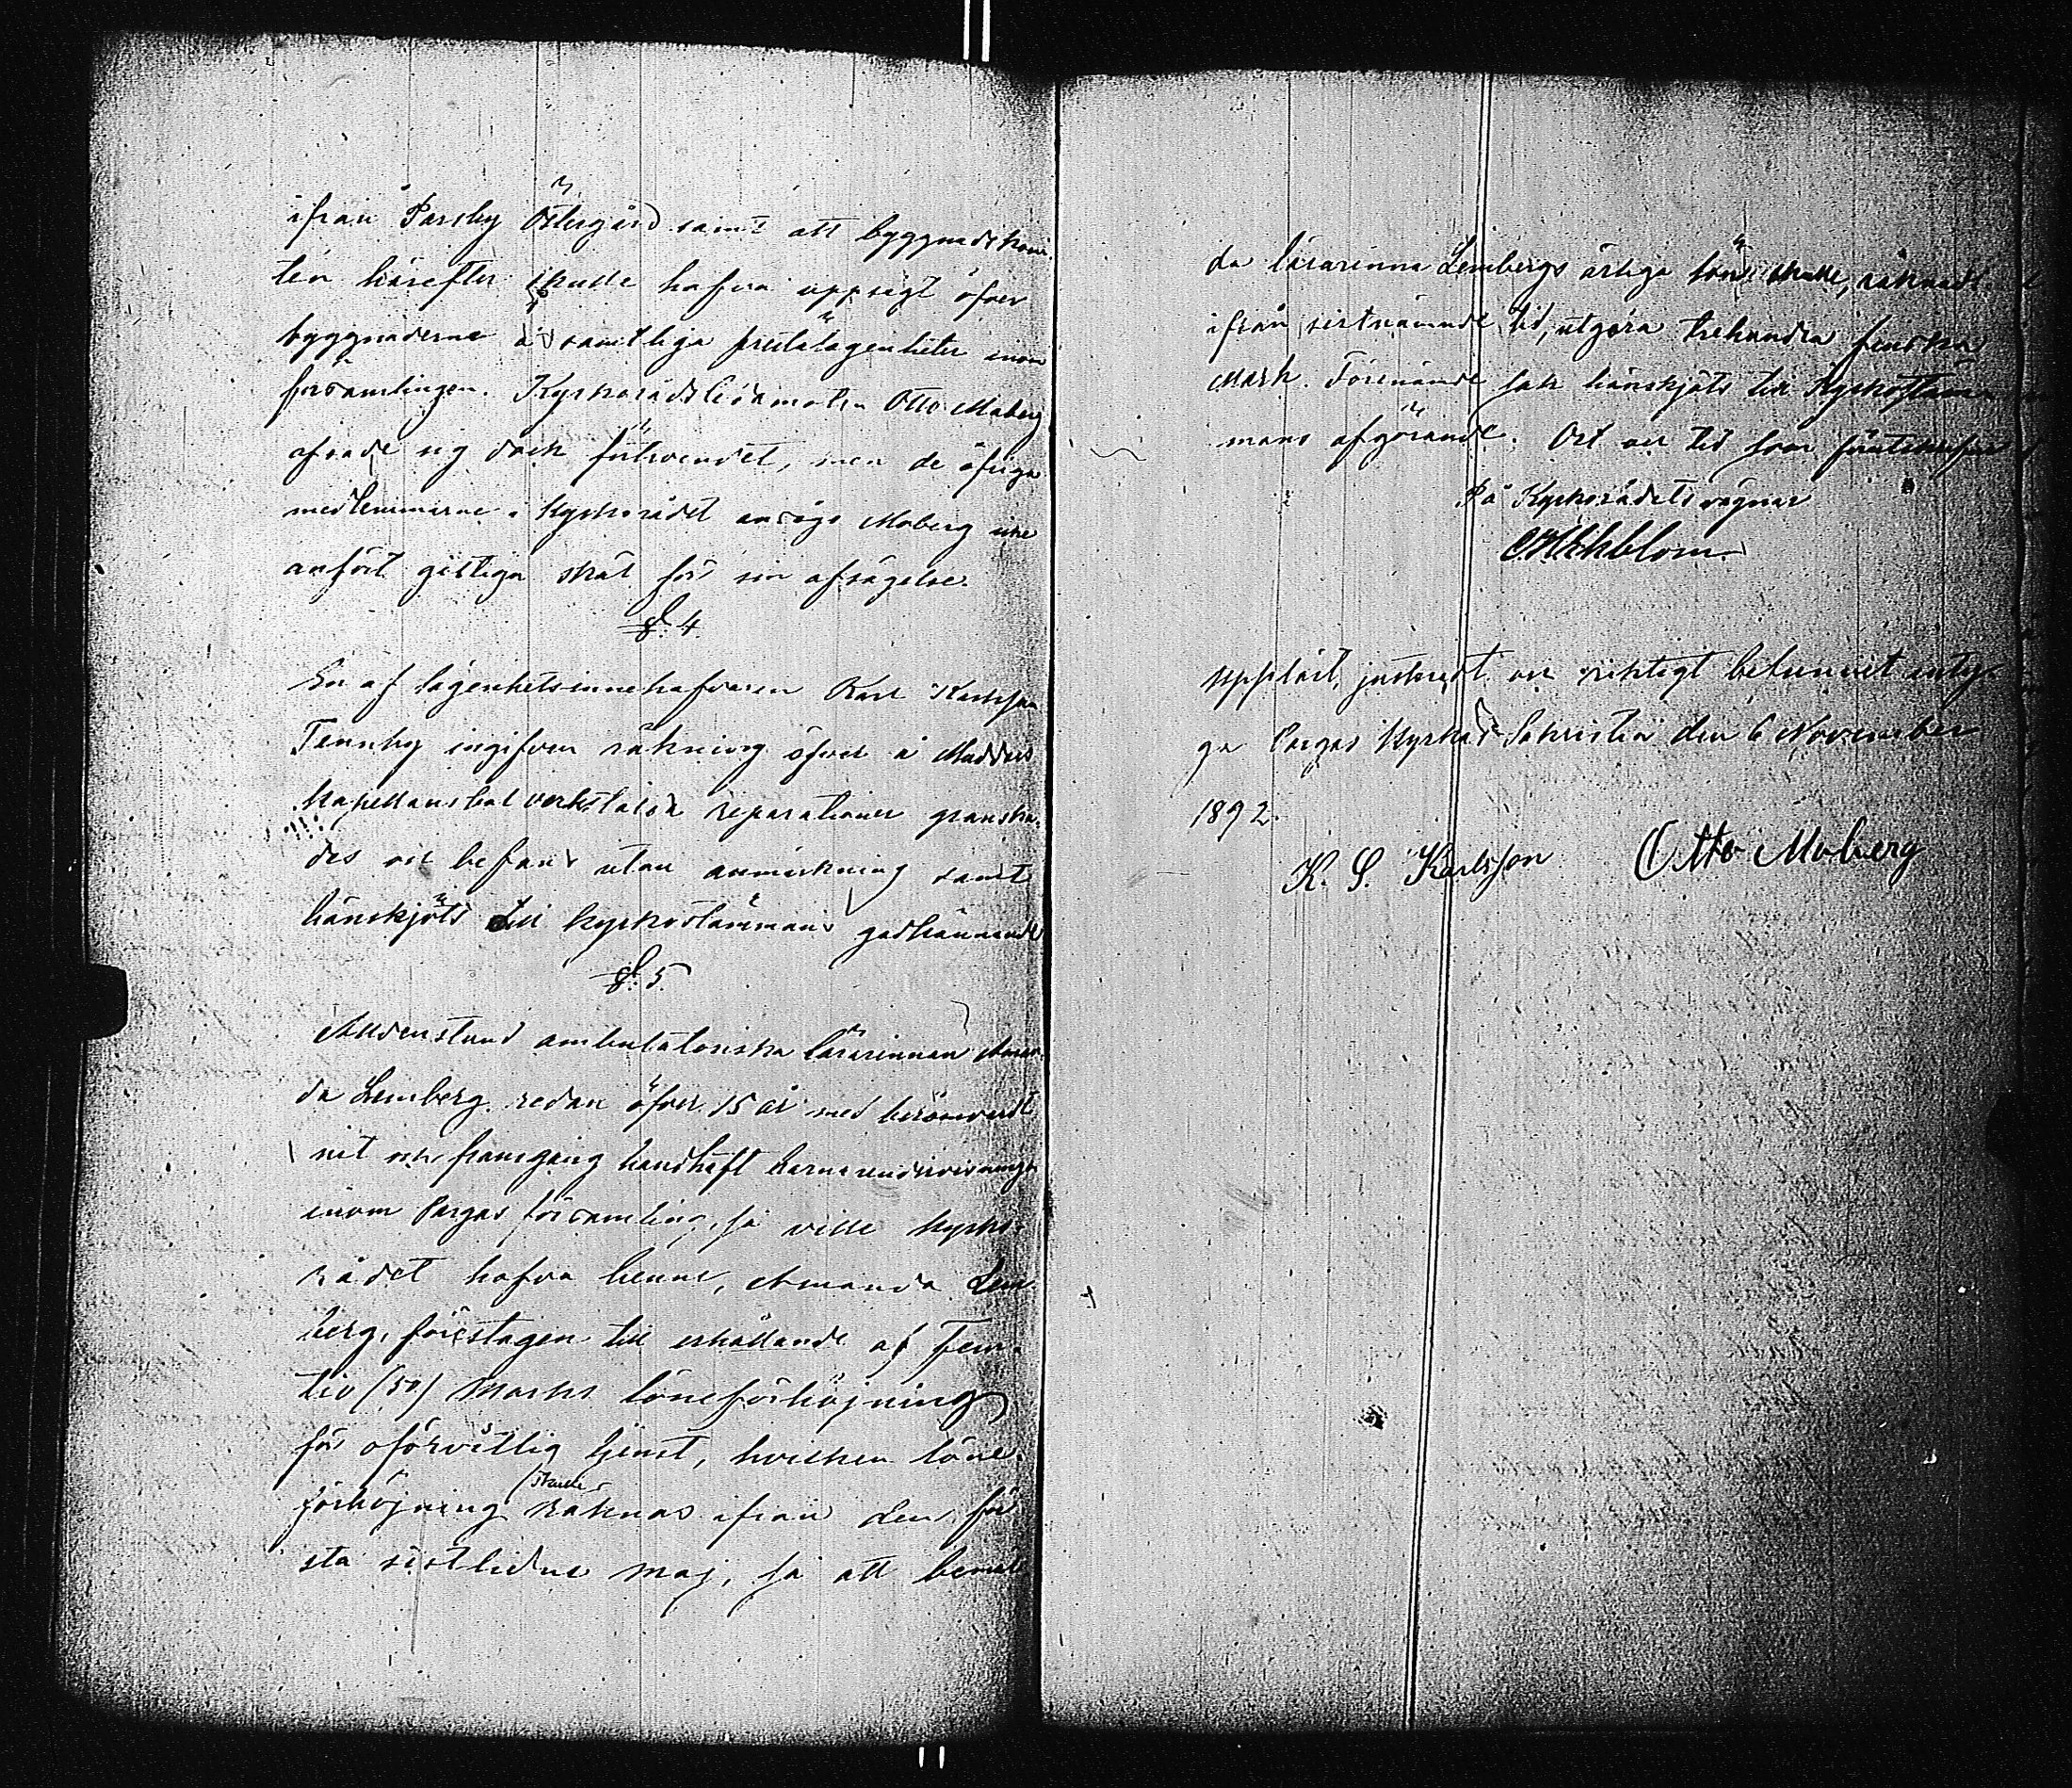 ifrån Parsby Östergård samt att byggnadskomi-
tén härefter skulle hafva uppsigt öfver
byggnaderna å samtliga prestalägenheter inom
församlingen. Kyrkorådsledamoten Otto Moberg
afsade sig dock förtroendet, men de öfriga
medlemmarne i Kyrkorådet ansågo Moberg icke
anfört giltiga skäl för sin afsägelse.
§. 4.
En af lägenhetsinnehafvaren Karl Karlsson
Tennby ingifven räkning öfver å Muddais
Kapellansbol verkstälda reparationer granska-
des och befans utan anmärkning samt
hänskjöts till kyrkostämmans godkännande
§. 5.
Alldenstund ambulatoriska lärarinnan Aman-
da Lemberg redan öfver 15 år med berömvärdt
nit och framgång handhaft barnaundervisningen
inom Pargas församling, så ville Kyrko-
rådet hafva henne, Amanda Lem-
berg, föreslagen till erhållande af Fem-
tio (50) Marks löneförhöjning
för oförvitlig tjenst, hvilken löne-
förhöjning skulle räknas ifrån den för-
sta sistlidne Maj, så att bemäl-
da lärarinna Lembergs årliga lön skulle, räknadt
ifrån sistnämnde tid, utgöra trehundra finska
Mark. Förenämnde sak hänskjöts till Kyrkostäm-
mans afgörande. Ort och tid som förutskrifves
På Kyrkorådets vägnar
Uppläst, justeradt och riktigt befunnet intyg-
ga Pargas Kyrkas Sakristia den 6 November
1892.
K. S. Karlsson Otto Moberg